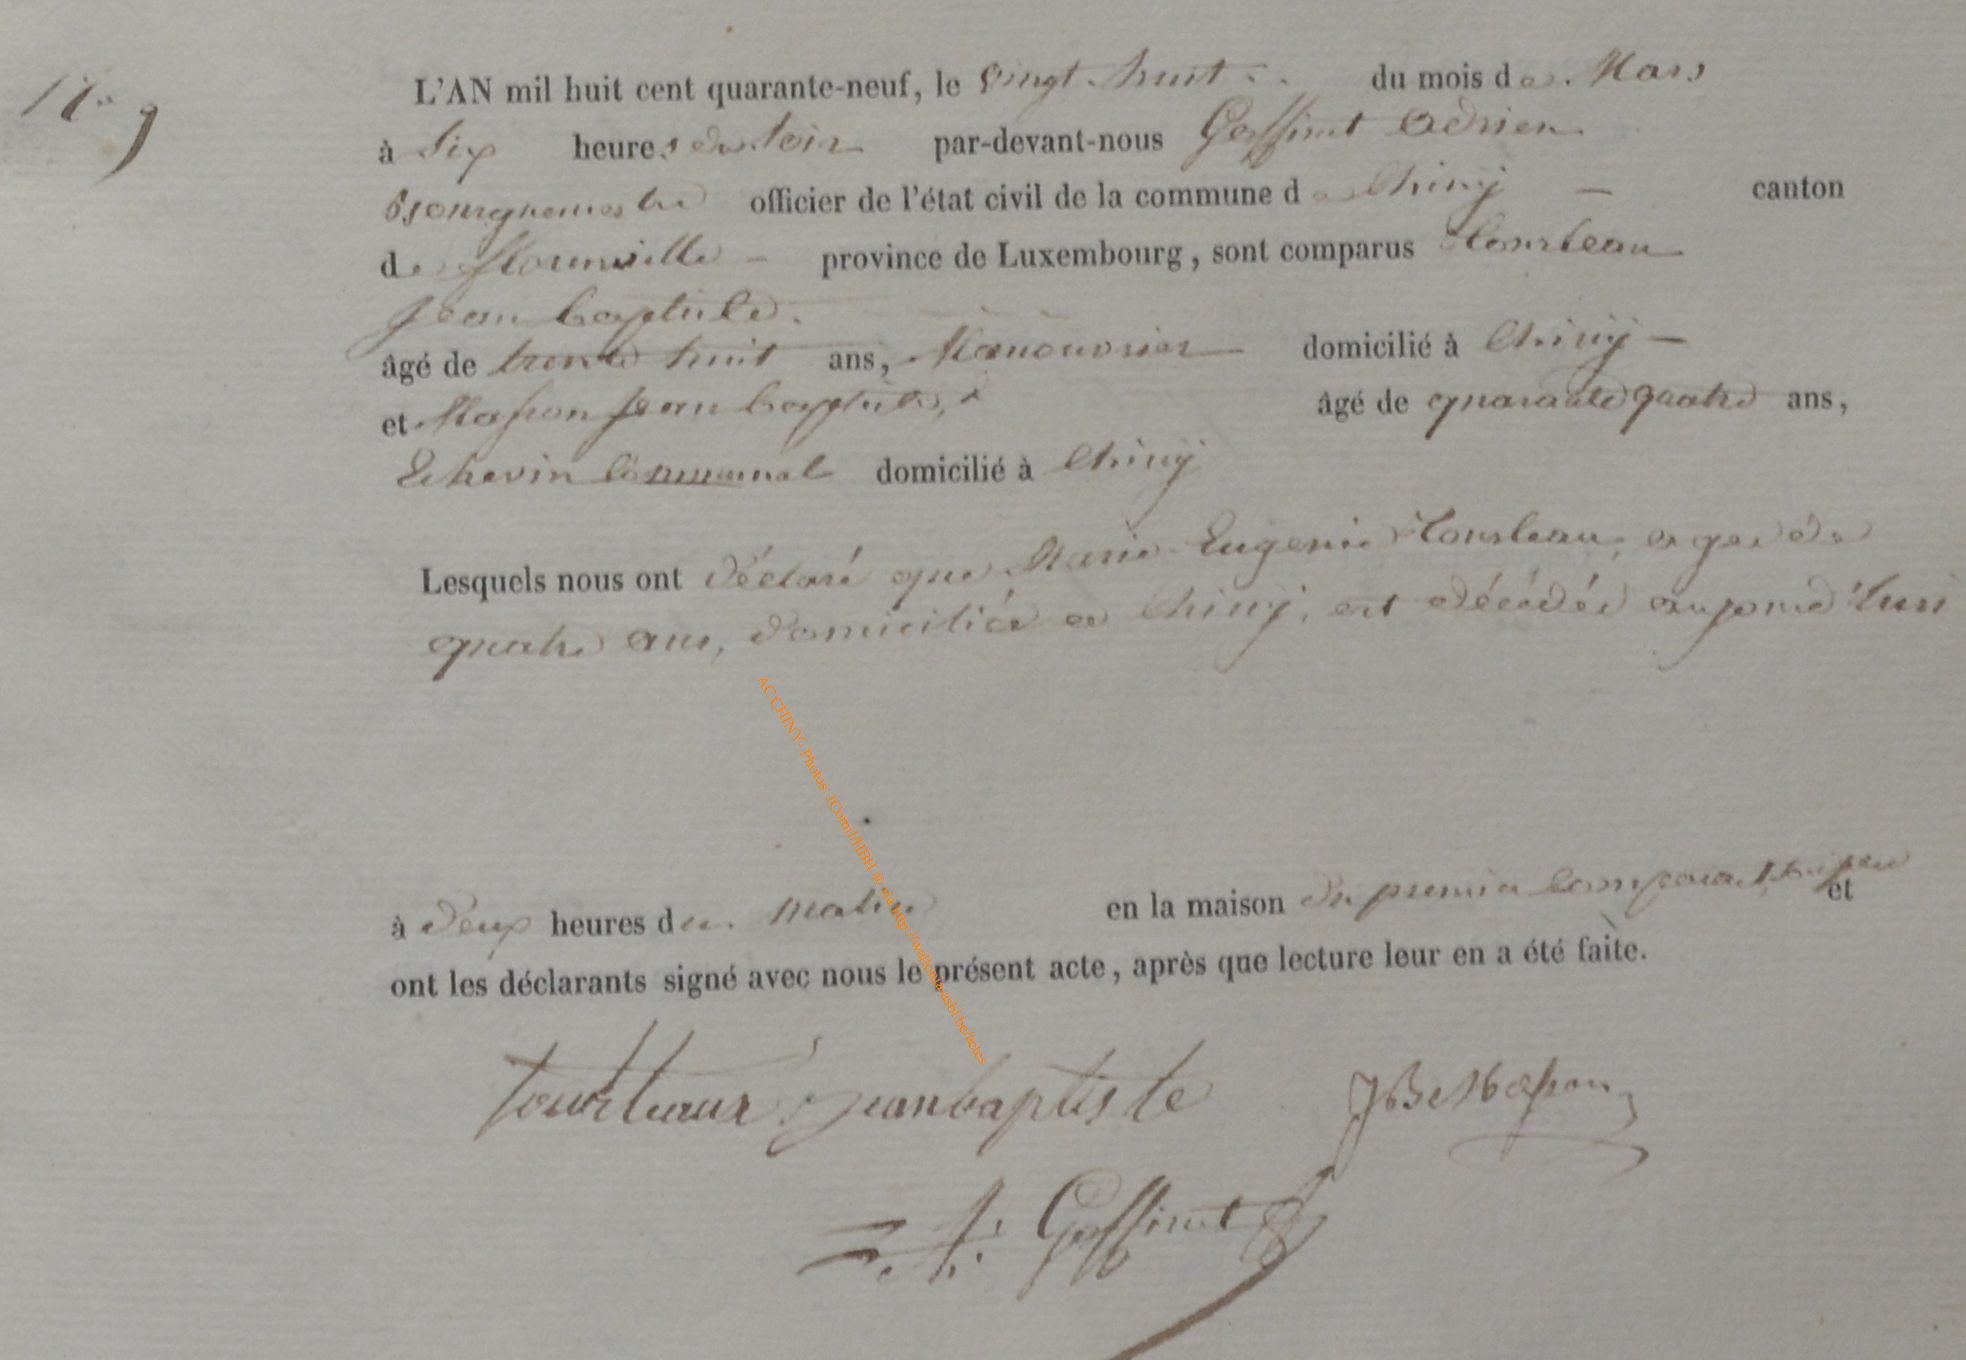 N° 9
L'AN mil huit cent quarante-neuf, le vingt-huit du mois de Mars
à Six heures du soir par-devant-nous Goffinet Adrien
Bourguemestre officier de l'état civil de la commune de Chiny — canton
de florenville — province de Luxembourg, sont comparus Tourteau
Jean baptiste.
âgé de trente huit ans, Manouvrier domicilié à Chiny —
et Masson Jean baptiste, âgé de quarante quatre ans,
Echevin Communal domicilié à Chiny
Lesquels nous ont déclaré que Marie Eugenie Tourteau, agée de
quatre ans, domiciliée a Chiny, est décédée aujourd'hui
à deux heures du matin en la maison du premier comparant et
ont les déclarants signé avec nous le présent acte, après que lecture leur en a été faite.
tourteaux jeanbaptiste JBte Masson
A. Goffinet
AC CHINY- Photos